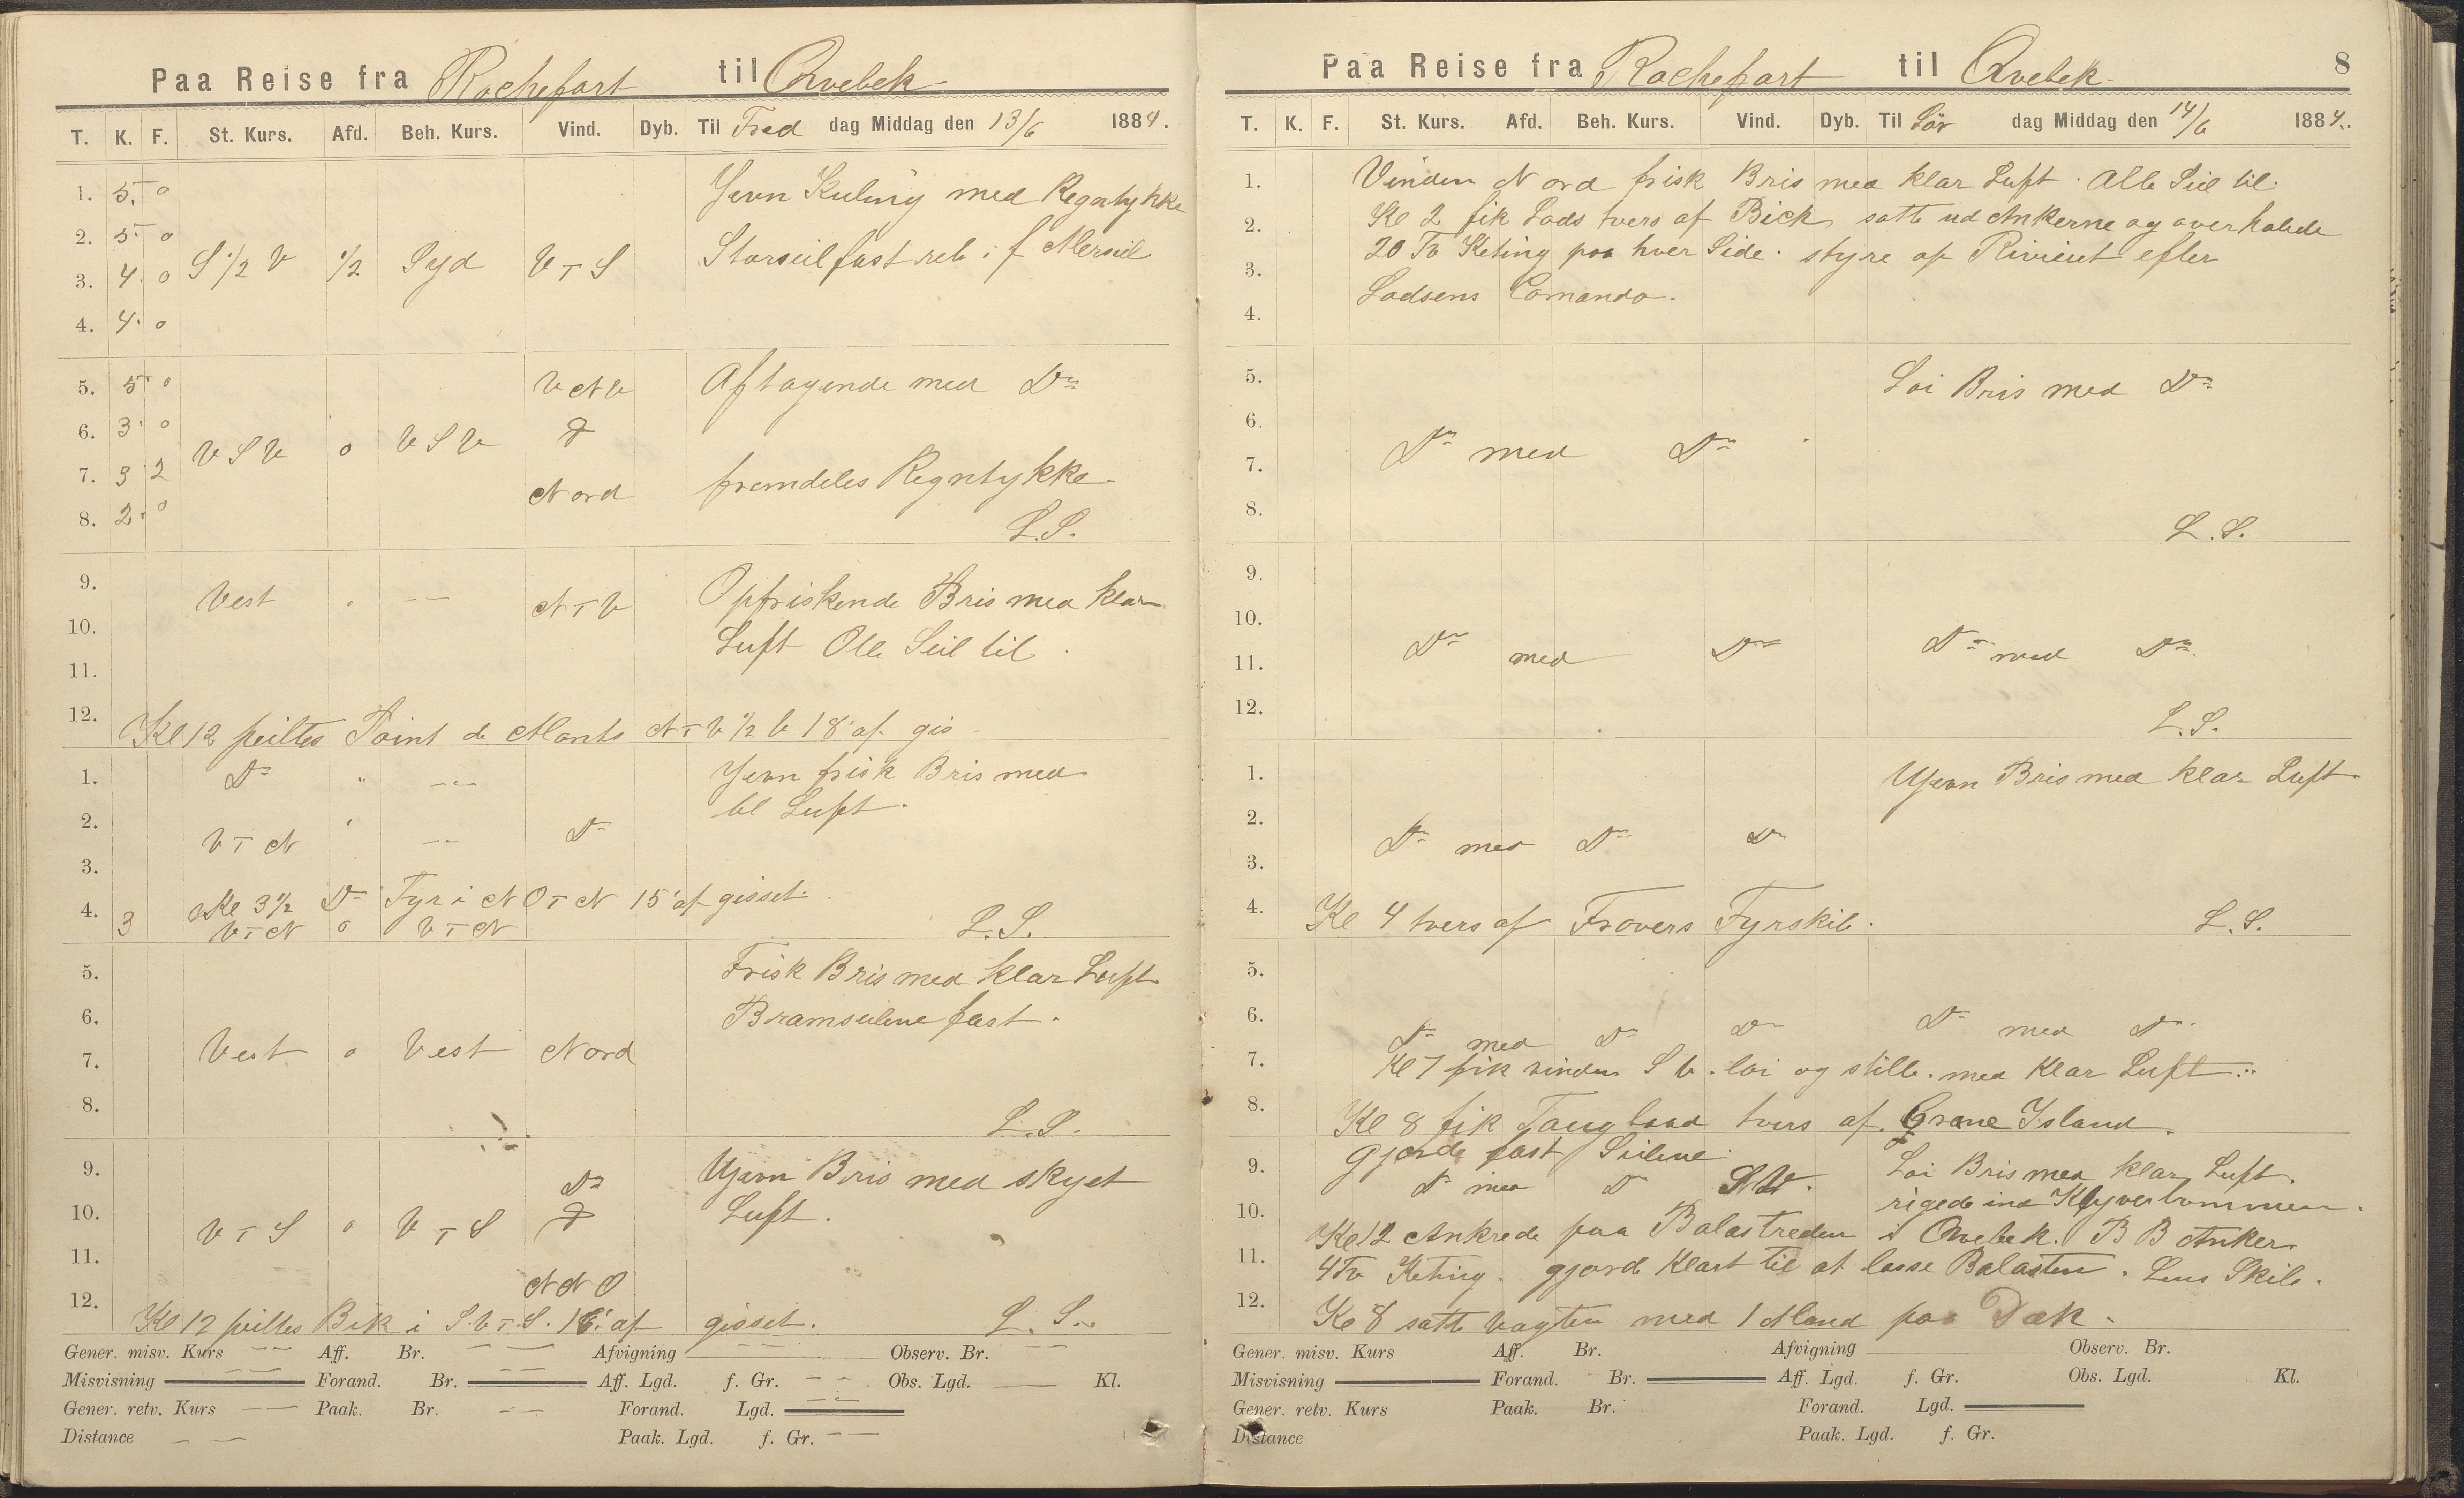 Paa Reise fra Rochefort til Qvebek
T. K. F. St. Kurs. Afd. Beh. Kurs. Vind. Dyb. Til Fred dag Middag den 13/6 1884.
1. 5. 0 Jevn Kuling med Regntykke
2. 5. 0
3. 4. 0 S 1/2 V 1/2 Syd V T S Storseil fast reb i f Merseil
4. 4. 0
5. 5. 0 V N V Aftagende med Do
6. 3. 0 &
7. 3 2 V S V 0 V S V Nord fremdeles Regntykke
8. 2. 0 L.S.
9. Vest - - N T V Opfriskende Bris med klar
10. Luft Alle Seil til
11.
12. Kl 12 peiltes Point de Monts N T V 1/2 V 18' af gis
1. Do " - - Jevn frisk Bris med
2. V T N ' - - Do kl Luft.
3.
4. 3 Kl 3 1/2 Do Fyr i N O T N 15' af gisset.
V T N 0 V T N L.S.
5. Frisk Bris med klar Luft
6. Bramseilene fast.
7. Vest 0 Vest Nord
8. L.S.
9. Do Ujevn Bris med skyet
10. V T S 0 V T S & Luft.
11. N N O
12. Kl 12 peiltes Bik i S.V T S. 16' af gisset. L.S.
Gener. misv. Kurs - - Aff. Br. - - Afvigning - - Observ. Br. - -
Misvisning Forand. Br. - - Aff. Lgd. f. Gr. - - Obs. Lgd. — Kl.
Gener. retv. Kurs - - Paak. Br. - - Forand. Lgd. - -
Distance - - Paak. Lgd. f. Gr. - -
Paa Reise fra Rochefort til Qvebek 8
T. K. F. St. Kurs. Afd. Beh. Kurs. Vind. Dyb. Til Lör dag Middag den 14/6 1884.
1. Vinden Nord frisk Bris med klar Luft. Alle Seil til.
2. Kl 2 fik Lods tvers af Bick, satte ud Ankerne og overhalede
3. 20 Fv Keting paa hver Side. styre op Rivieret efter
4. Lodsens Comando.
5. Loi Bris med Do
6.
7. Do med Do
8. L.S.
9.
10.
11. Do med Do Do med Do
12. L.S.
1. Ujevn Bris med klar Luft.
2.
3. Do med Do Do
4. Kl 4 tvers af Fyrskib. L.S.
5.
6. Do med Do Do Do med Do
7. Kl 7 fik vinden S V. loi og stille. med klar Luft
8. Kl 8 fik Taugbaad tvers af Crane Island.
gjorde fast Seilene.
9. Do med Do SW. Loi Bris med klar Luft.
10. rigede ind Klyverbommen.
Kl 12 Ankrede paa Balastreden i Qvebek. B B Anker
11. 4 Fv Keting. gjord Klart til at losse Balasten. Lens Skib.
12. Kl 8 satte Vagten med 1 Mand paa Dæk.
Gener. misv. Kurs Aff. Br. Afvigning Observ. Br.
Misvisning Forand. Br. Aff. Lgd. f. Gr. Obs. Lgd. Kl.
Gener. retv. Kurs Paak. Br. Forand. Lgd.
Distance Paak. Lgd. f. Gr.